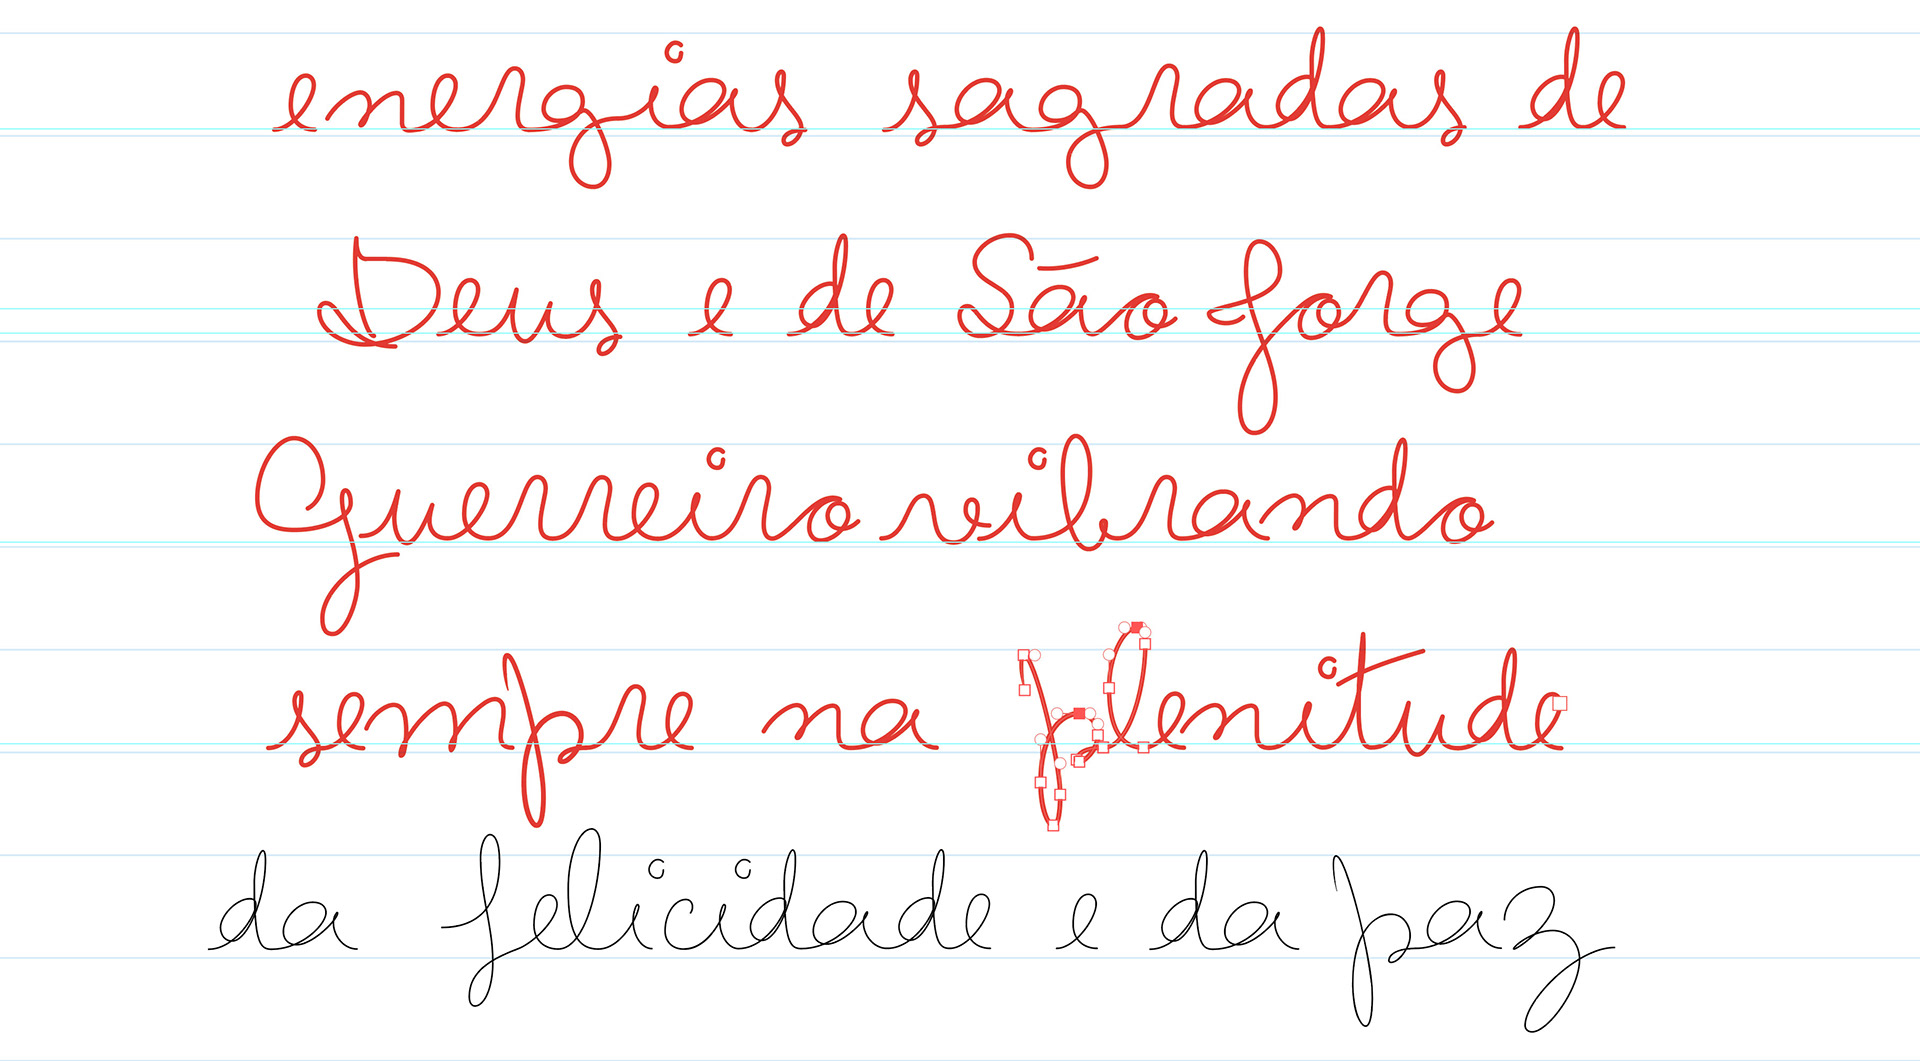 energias sagradas de
Deus e de São Jorge
Guerreiro vibrando
sempre na plenitude
da felicidade e da paz